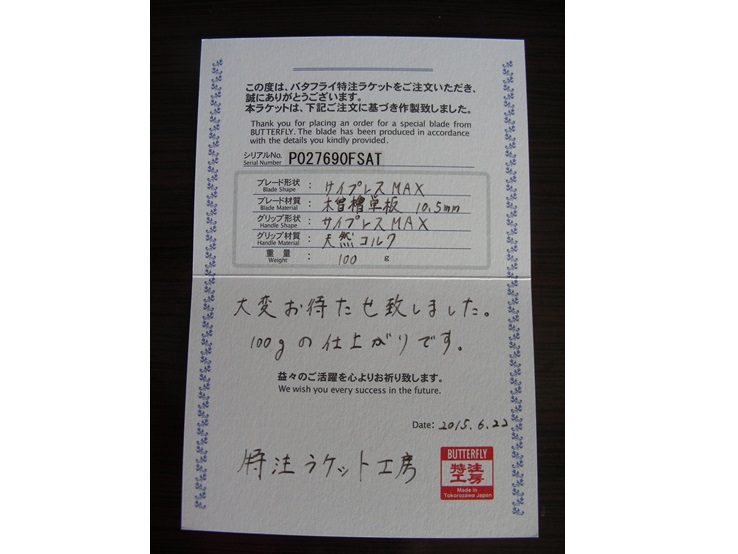 この度は、バタフライ特注ラケットをご注文いただき、
誠にありがとうございます。
本ラケットは、下記ご注文に基づき作製致しました。
Thank you for placing an order for a special blade from
BUTTERFLY. The blade has been produced in accordance
with the details you kindly provided.
シリアルNo. P027690FSAT
Serial Number
ブレード形状 : サイプレスMAX
Blade Shape
ブレード材質 : 木曽檜単板 10.5mm
Blade Material
グリップ形状 : サイプレスMAX
Handle Shape
グリップ材質 : 天然コルク
Handle Material
重量 : 100 g
Weight
大変お待たせ致しました。
100gの仕上がりです。
益々のご活躍を心よりお祈り致します。
We wish you every success in the future.
Date: 2015.6.22
特注ラケット工房
BUTTERFLY
特注
工房
Made in
Tokorozawa Japan